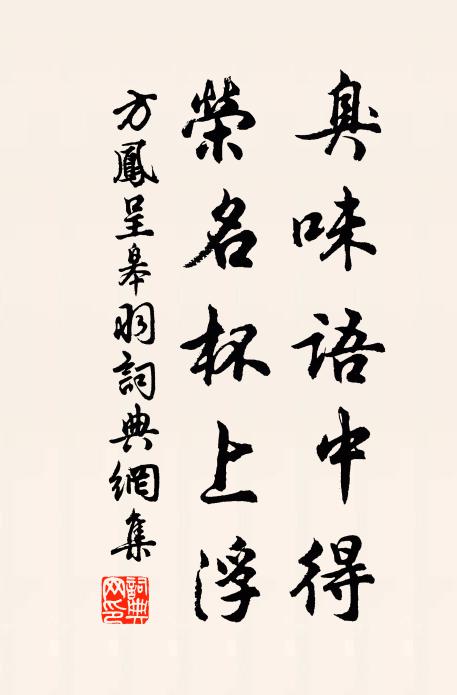 臭味語中得
榮名杯上浮
方鳳呈皋羽詞典網集
詞典网印